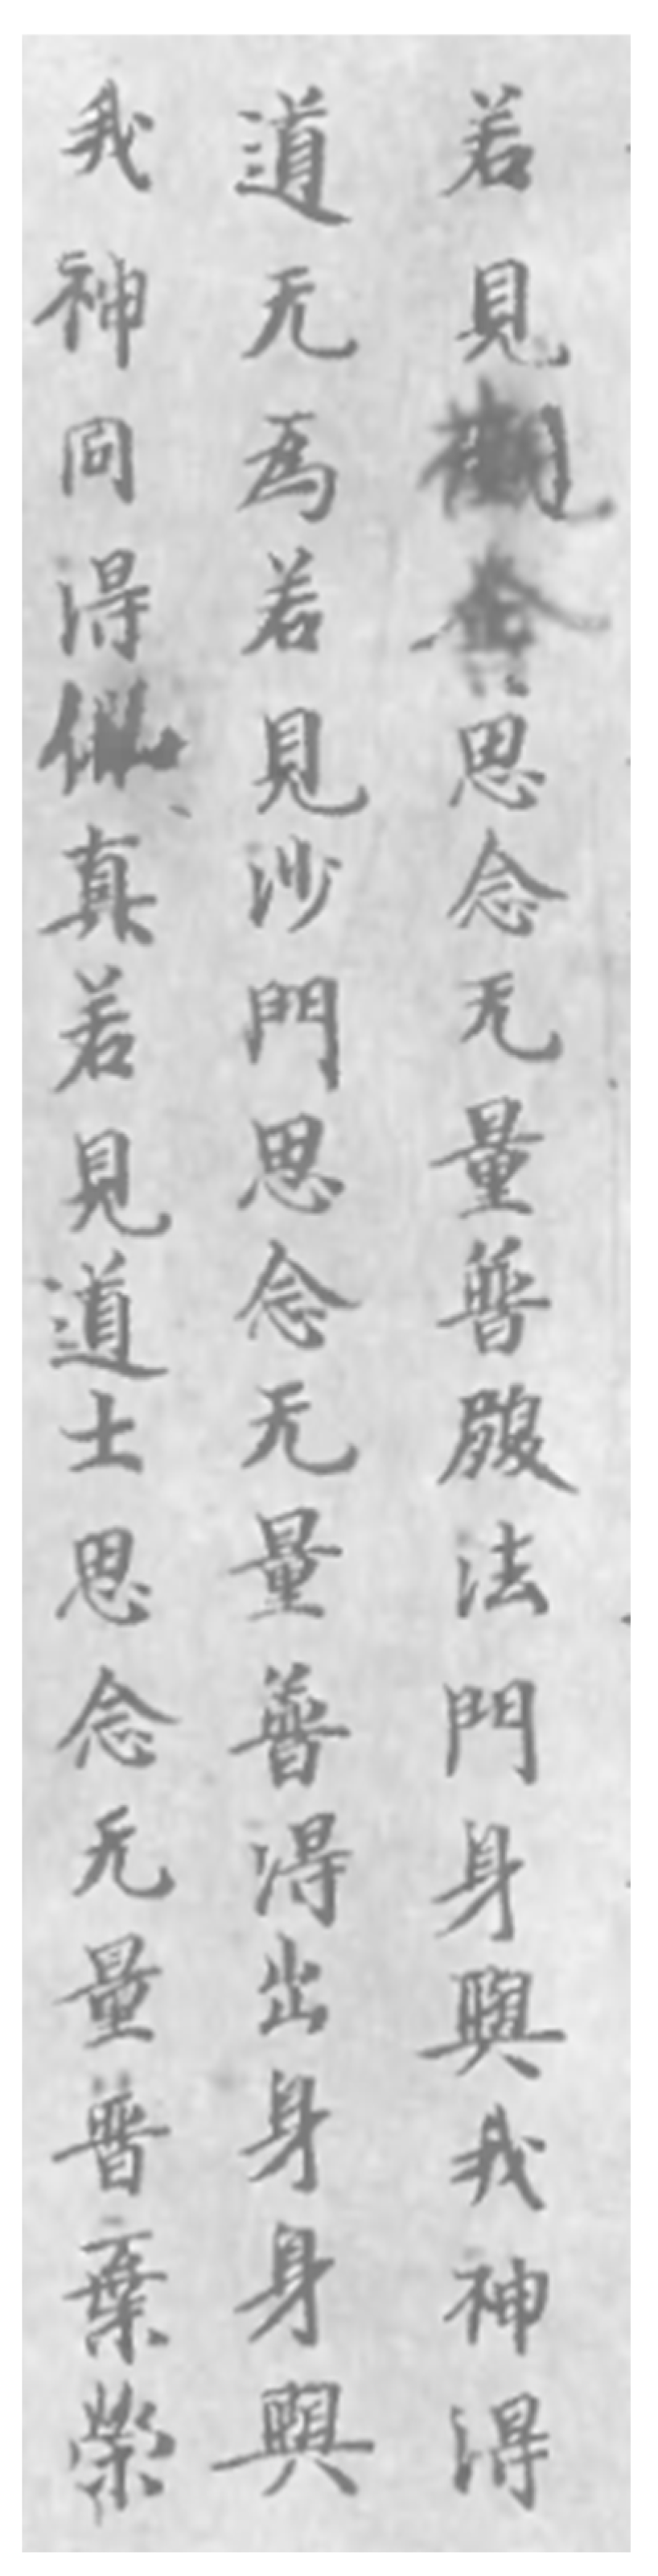 若見觀舍思念无量普履法門身與我神得
道无為若見沙門思念无量普得出身身與
我神同得仙真若見道士思念无量普棄榮